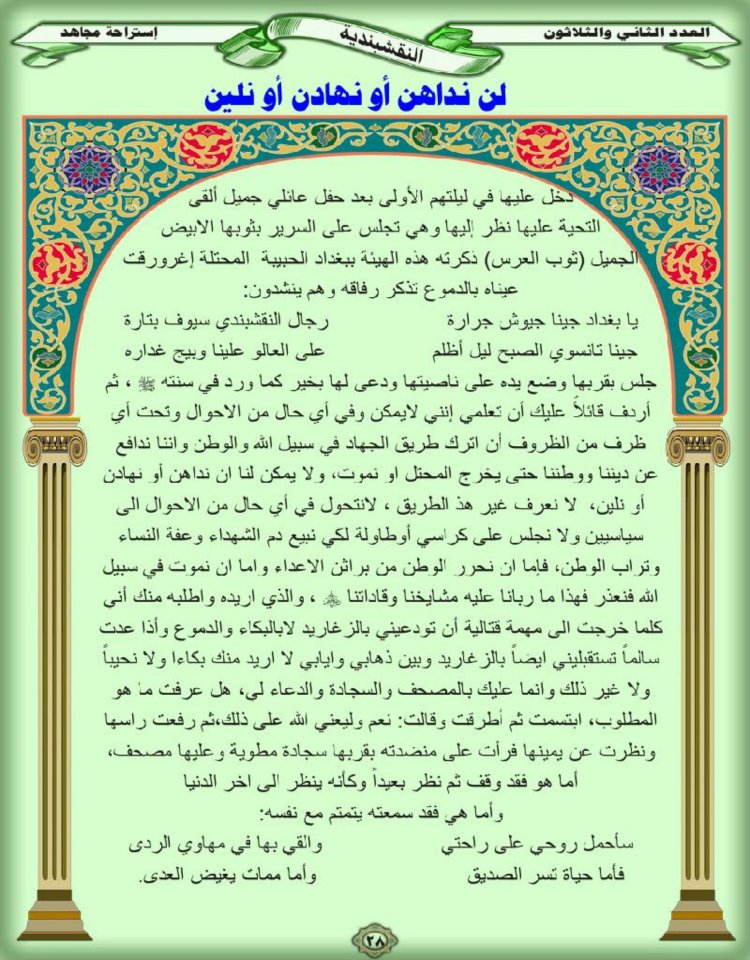 العدد الثاني والثلاثون
النقشبندية
إستراحة مجاهد
لن نداهن أو نهادن أو نلين
دخل عليها في ليلتهم الأولى بعد حفل عائلي جميل ألقى
التحية عليها نظر إليها وهي تجلس على السرير بثوبها الابيض
الجميل (ثوب العرس) ذكرته هذه الهيئة ببغداد الحبيبة المحتلة إغرورقت
عيناه بالدموع تذكر رفاقه وهم ينشدون:
يا بغداد جينا جيوش جرارة رجال النقشبندي سيوف بتارة
جينا تانسوي الصبح ليل أظلم على العالو علينا وبيج غداره
جلس بقربها وضع يده على ناصيتها ودعى لها بخير كما ورد في سنته ﷺ ، ثم
أردف قائلاً عليك أن تعلمي إنني لايمكن وفي أي حال من الاحوال وتحت أي
ظرف من الظروف أن اترك طريق الجهاد في سبيل الله والوطن واننا ندافع
عن ديننا ووطننا حتى يخرج المحتل او نموت، ولا يمكن لنا ان نداهن أو نهادن
أو نلين، لا نعرف غير هذ الطريق ، لانتحول في أي حال من الاحوال الى
سياسيين ولا نجلس على كراسي أوطاولة لكي نبيع دم الشهداء وعفة النساء
وتراب الوطن، فإما ان نحرر الوطن من براثن الاعداء واما ان نموت في سبيل
الله فنعذر فهذا ما ربانا عليه مشايخنا وقاداتنا ، والذي اريده واطلبه منك أني
كلما خرجت الى مهمة قتالية أن تودعيني بالزغاريد لابالبكاء والدموع وأذا عدت
سالماً تستقبليني ايضاً بالزغاريد وبين ذهابي وايابي لا اريد منك بكاءا ولا نحيباً
ولا غير ذلك وانما عليك بالمصحف والسجادة والدعاء لي، هل عرفت ما هو
المطلوب، ابتسمت ثم أطرقت وقالت: نعم وليعني الله على ذلك،ثم رفعت راسها
ونظرت عن يمينها فرأت على منضدته بقربها سجادة مطوية وعليها مصحف،
أما هو فقد وقف ثم نظر بعيداً وكأنه ينظر الى اخر الدنيا
وأما هي فقد سمعته يتمتم مع نفسه:
سأحمل روحي على راحتي والقي بها في مهاوي الردى
فأما حياة تسر الصديق وأما ممات يغيض العدى.
٢٨